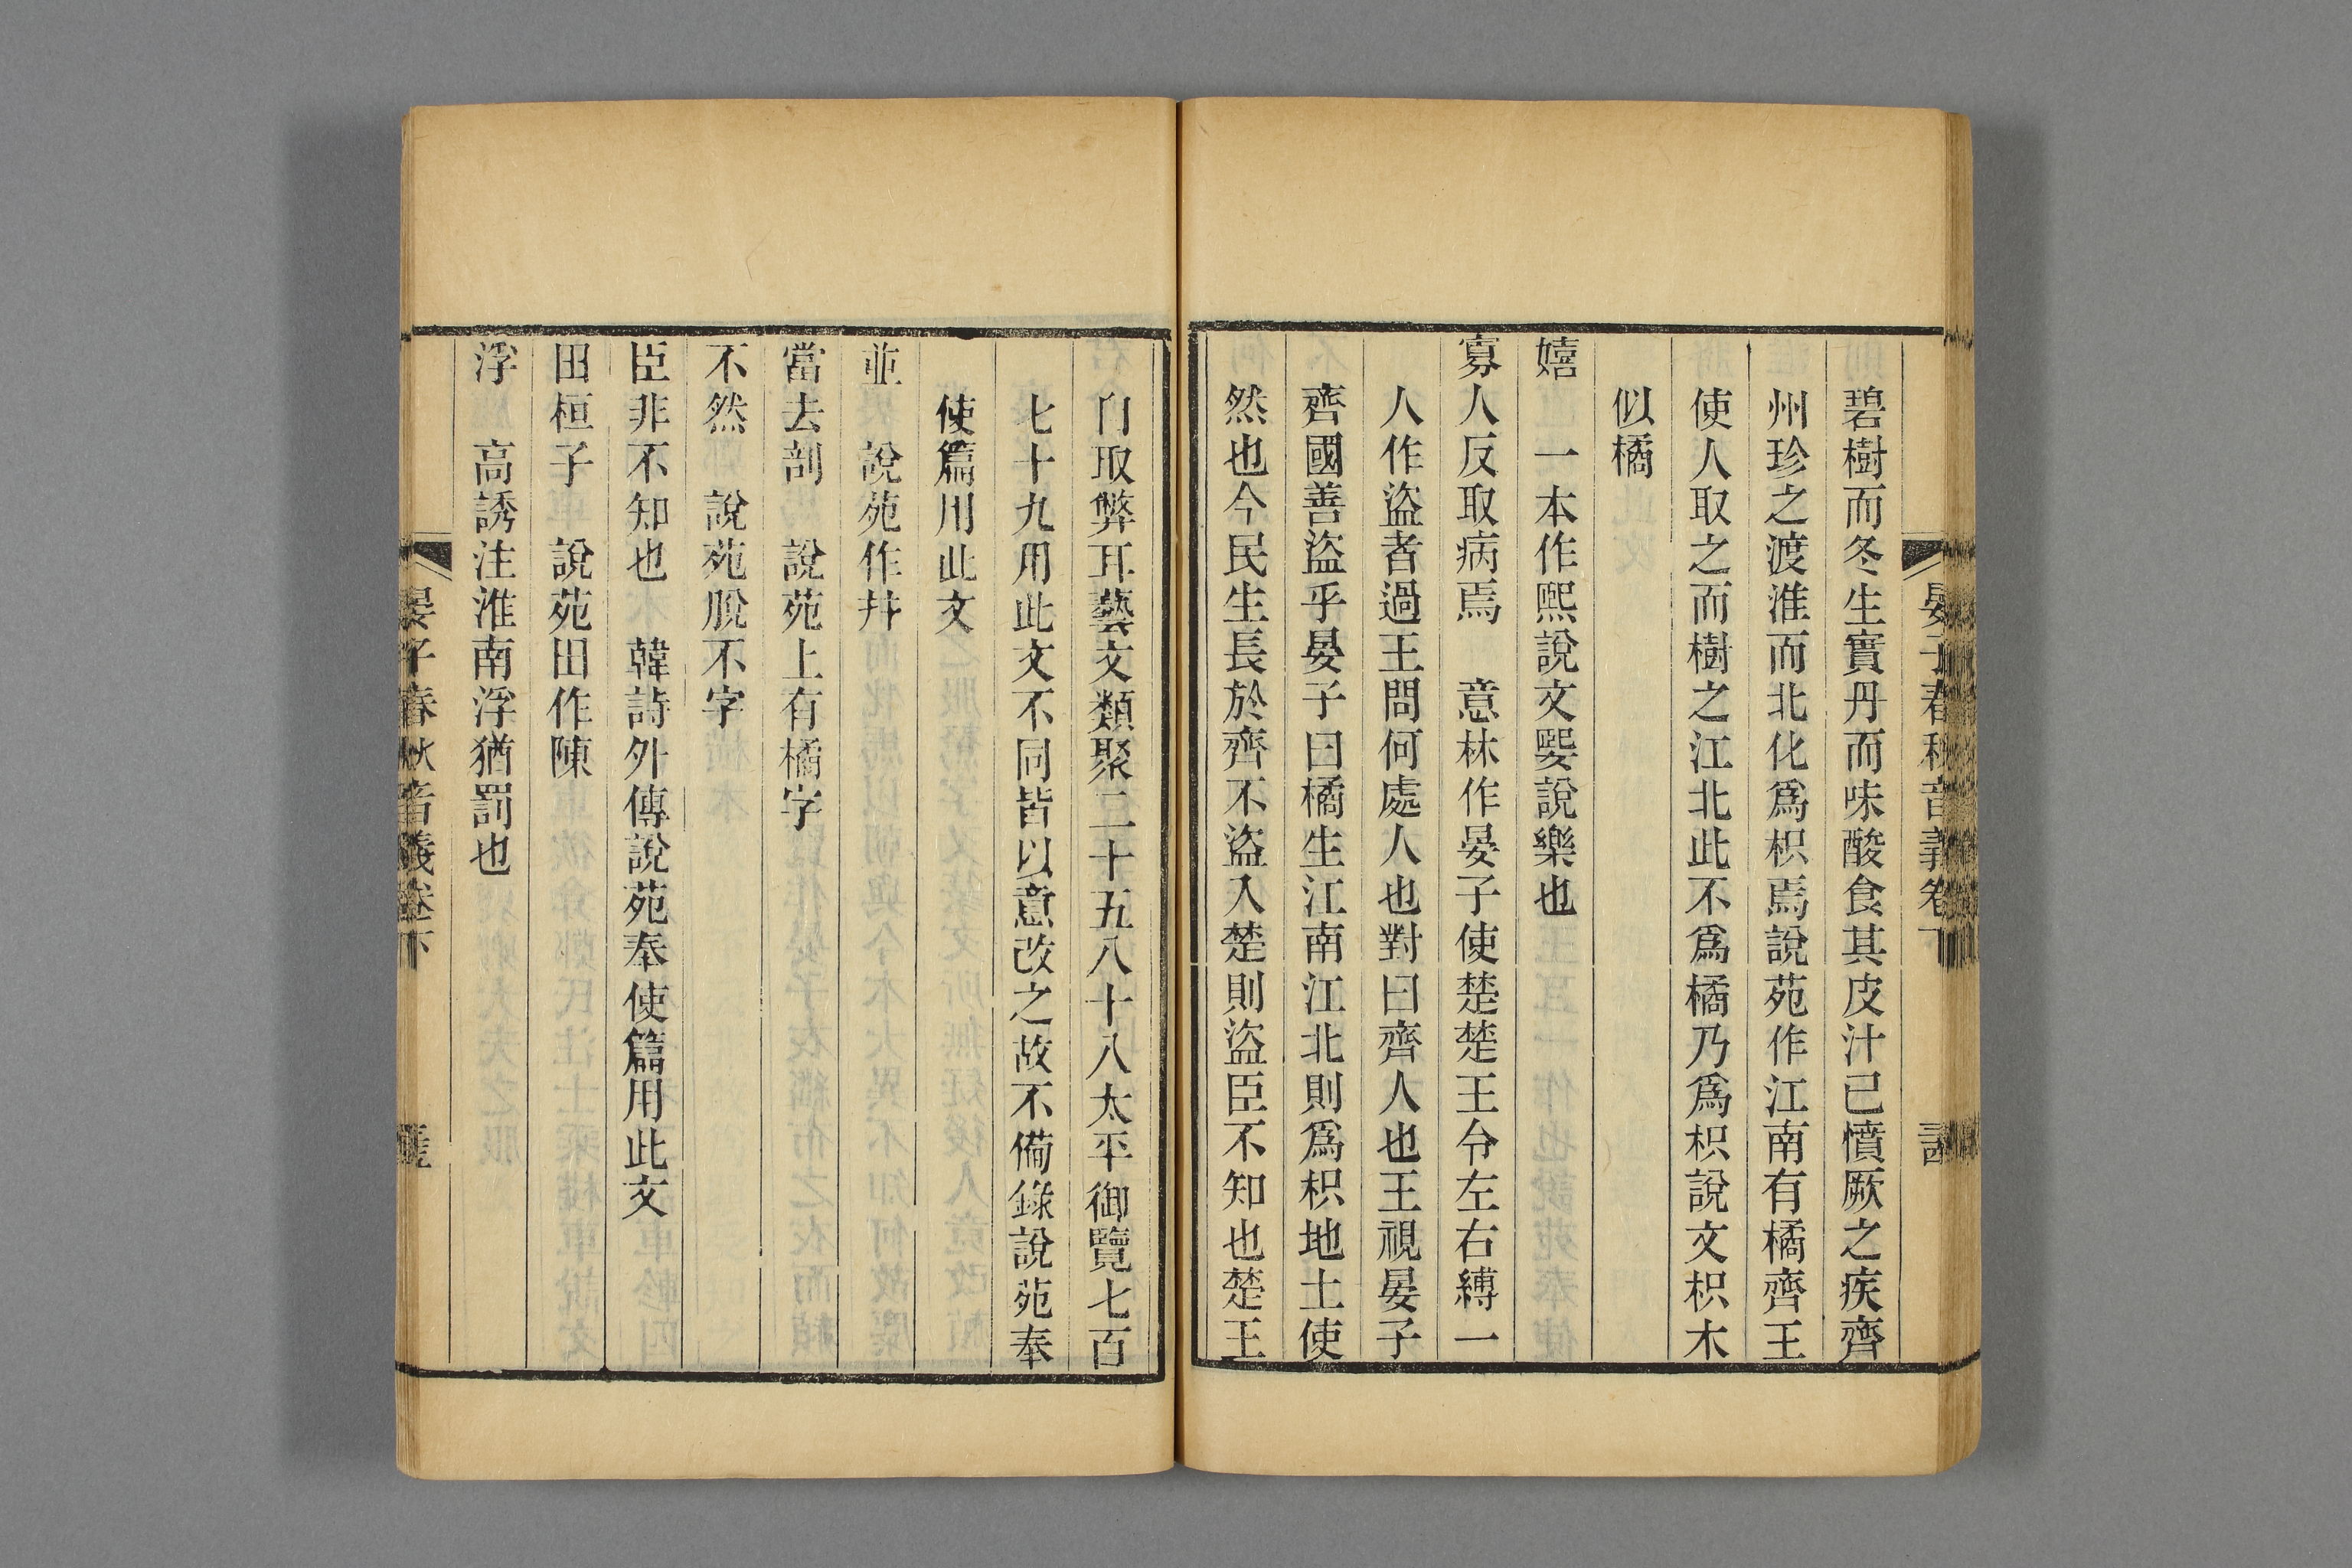 晏子春秋音義卷下
碧樹而冬生實丹而味酸食其皮汁已憤厥之疾齊
州珍之渡淮而北化爲枳焉說苑作江南有橘齊王
使人取之而樹之江北此不爲橘乃爲枳說文枳木
似橘
嬉　一本作熙說文娶說樂也
寡人反取病焉　意林作晏子使楚楚王令左右縛一
人作盜者過王問何處人也對曰齊人也王視晏子
齊國善盜乎晏子曰橘生江南江北則爲枳地土使
然也今民生長於齊不盜入楚則盜臣不知也楚王
自取弊耳藝文類聚二十五八十八太平御覽七百
七十九用此文不同皆以意改之故不備錄說苑奉
使篇用此文
並　說苑作井
當去剖　說苑上有橘字
不然　說苑脫不字
臣非不知也　韓詩外傳說苑奉使篇用此文
田桓子　說苑田作陳
浮　高誘注淮南浮猶罰也
晏子春秋音義卷下